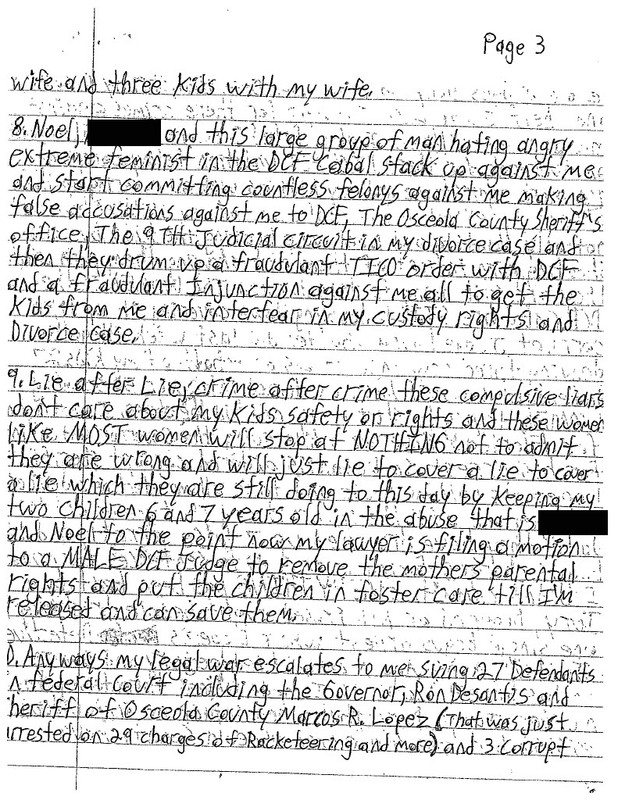 Page 3
wife and three kids with my wife.
8. Noel, and this large group of man hating angry
extreme feminist in the DCF Cabal stack up against me
and start committing countless felonys against me making
false accusations against me to DCF, The Osceola County Sheriff's
office, The 9TH Judicial circuit in my divorce case and
then they drum up a fraudulant TICO order with DCF
and a fraudulant Injunction against me all to get the
kids from me and interfear in my custody rights and
Divorce case.
9. Lie after Lie, crime after crime these compulsive liars
don't care about my kids safety or rights and these women
Like MOST women will stop at NOTHING not to admit
they are wrong and will just lie to cover a lie to cover
a lie which they are still doing to this day by keeping my
two children 6 and 7 years old in the abuse that is
and Noel to the point now my lawyer is filing a motion
to a MALE DCF Judge to remove the mothers parental
rights and put the children in foster care till I'm
released and can save them.
0. Anyways my legal war escalates to me suing 27 Defendants
in federal Court including the Governor, Ron Desantis and
heriff of Osceola County Marcos R. Lopez (That was just
rrested on 29 charges of Racketeering and more) and 3 corrupt